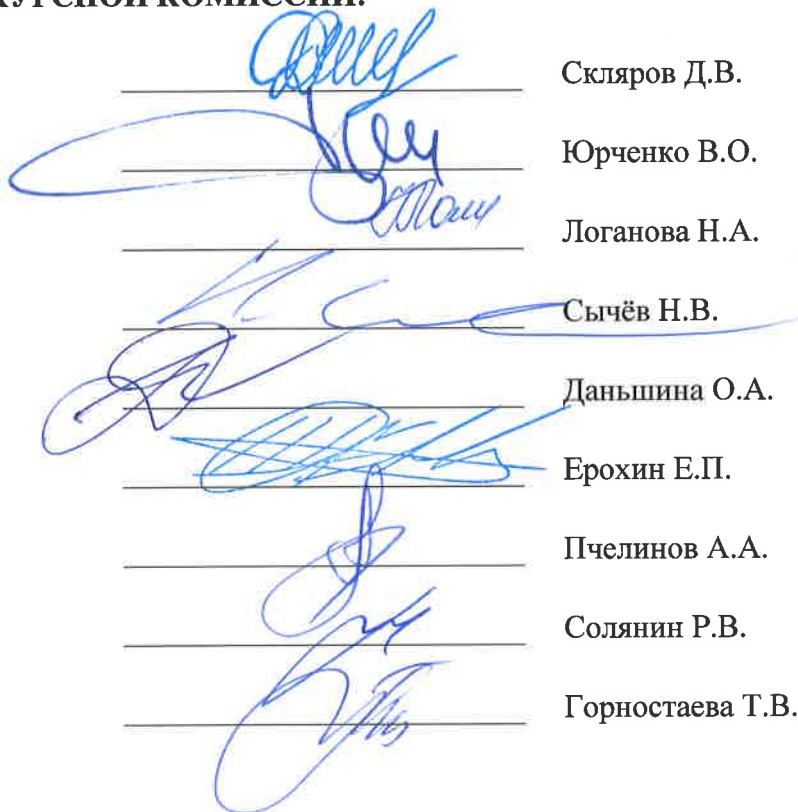 КУРСНОЙ КОМИССИИ:
Скляров Д.В.
Юрченко В.О.
Логанова Н.А.
Сычёв Н.В.
Даньшина О.А.
Ерохин Е.П.
Пчелинов А.А.
Солянин Р.В.
Горностаева Т.В.